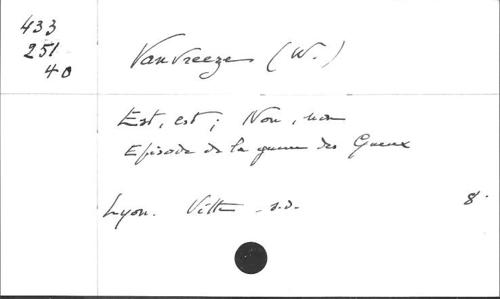 433
251
40
Vanvreeze (W.)
Est, est; Non, non
Episode de la guerre des Gueux
Lyon. Vitte - s.d. 8°